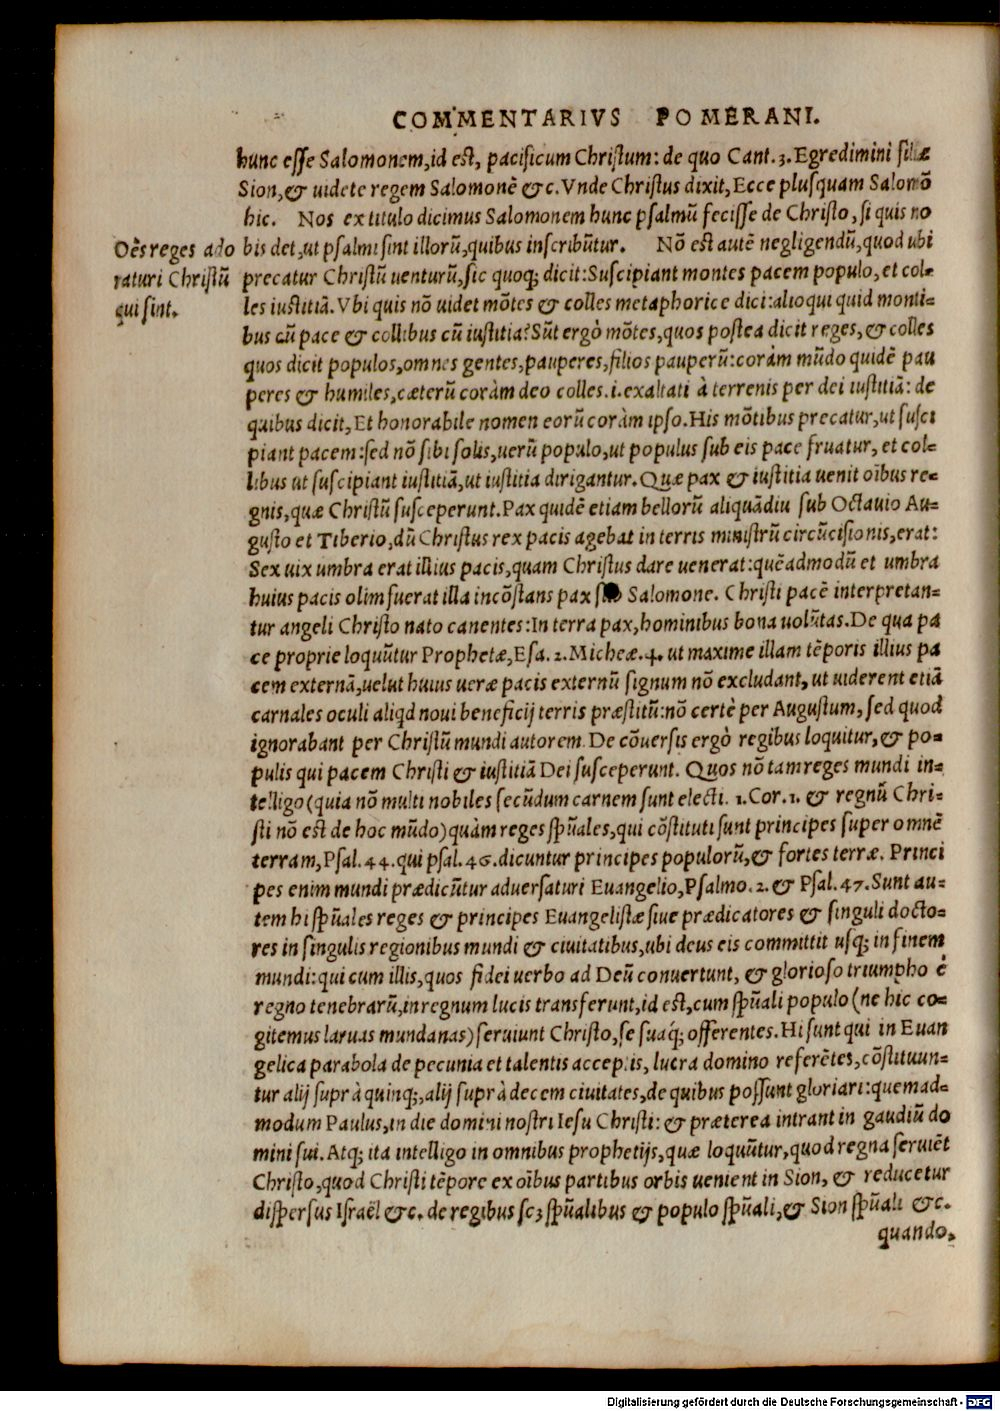 COMMENTARIVS POMERANI.
hunc esse Salomonem,id est, pacificum Christum: de quo Cant.3.Egredimini filiæ
Sion,& uidete regem Salomonē &c.Vnde Christus dixit,Ecce plusquam Salomō
hic. Nos ex titulo dicimus Salomonem hunc psalmū fecisse de Christo,si quis no
bis det,ut psalmi sint illorū,quibus inscribūtur. Nō est autē negligendū,quod ubi
Oēs reges ado
raturi Christū
qui sint.
precatur Christū uenturū,sic quoq; dicit:Suscipiant montes pacem populo,et col=
les iustitiā.Vbi quis nō uidet mōtes & colles metaphorice dici:alioqui quid monti=
bus cū pace & collibus cū iustitia?Sūt ergò mōtes,quos postea dicit reges,& colles
quos dicit populos,omnes gentes,pauperes,filios pauperū:coràm mūdo quidē pau
peres & humiles,cæterū coràm deo colles.i.exaltati à terrenis per dei iustitiā: de
quibus dicit,Et honorabile nomen eorū coràm ipso.His mōtibus precatur,ut susci
piant pacem:sed nō sibi solis,uerū populo,ut populus sub eis pace fruatur, et col=
libus ut suscipiant iustitiā,ut iustitia dirigantur.Quæ pax & iustitia uenit oībus re=
gnis,quæ Christū susceperunt.Pax quidē etiam bellorū aliquādiu sub Octauio Au=
gusto et Tiberio,dū Christus rex pacis agebat in terris ministrū circūcisionis,erat:
Sex uix umbra erat illius pacis,quam Christus dare uenerat:quēadmodū et umbra
huius pacis olim fuerat illa incōstans pax Salomone. Christi pacē interpretan=
tur angeli Christo nato canentes:In terra pax,hominibus bona uolūtas.De qua pa
ce proprie loquūtur Prophetæ,Esa.2.Micheæ.4.ut maxime illam tēporis illius pa
cem externā,uelut huius ueræ pacis externū signum nō excludant,ut uiderent etiā
carnales oculi aliqd noui beneficij terris præstitū:nō certè per Augustum,sed quod
ignorabant per Christū mundi autorem.De cōuersis ergò regibus loquitur,& po=
pulis qui pacem Christi & iustitiā Dei susceperunt. Quos nō tam reges mundi in=
telligo(quia nō multi nobiles secūdum carnem sunt electi. 1.Cor.1. & regnū Chri=
sti nō est de hoc mūdo)quàm reges spūales,qui cōstituti sunt principes super omnē
terram,Psal.44.qui psal.46.dicuntur principes populorū,& fortes terræ.Princi
pes enim mundi prædicūtur aduersaturi Euangelio,Psalmo.2.& Psal.47.Sunt au=
tem hi spūales reges & principes Euangelistæ siue prædicatores & singuli docto=
res in singulis regionibus mundi & ciuitatibus,ubi deus eis committit usq; in finem
mundi:qui cum illis,quos fidei uerbo ad Deū conuertunt, & glorioso triumpho è
regno tenebrarū,in regnum lucis transferunt,id est,cum spūali populo(ne hic co=
gitemus laruas mundanas)seruiunt Christo,se suaq; offerentes.Hi sunt qui in Euan
gelica parabola de pecunia et talentis acceptis, lucra domino referētes,cōstituun=
tur alij suprà quinq;,alij suprà decem ciuitates,de quibus possunt gloriari:quemad=
modum Paulus,in die domini nostri Iesu Christi: & præterea intrant in gaudiū do
mini sui.Atq; ita intelligo in omnibus prophetijs,quæ loquūtur,quod regna seruiēt
Christo,quod Christi tēpore ex oībus partibus orbis uenient in Sion, & reducetur
dispersus Israël &c. de regibus scȝ spūalibus & populo spūali,& Sion spūali &c.
quando.
Digitalisierung gefördert durch die Deutsche Forschungsgemeinschaft - DFG